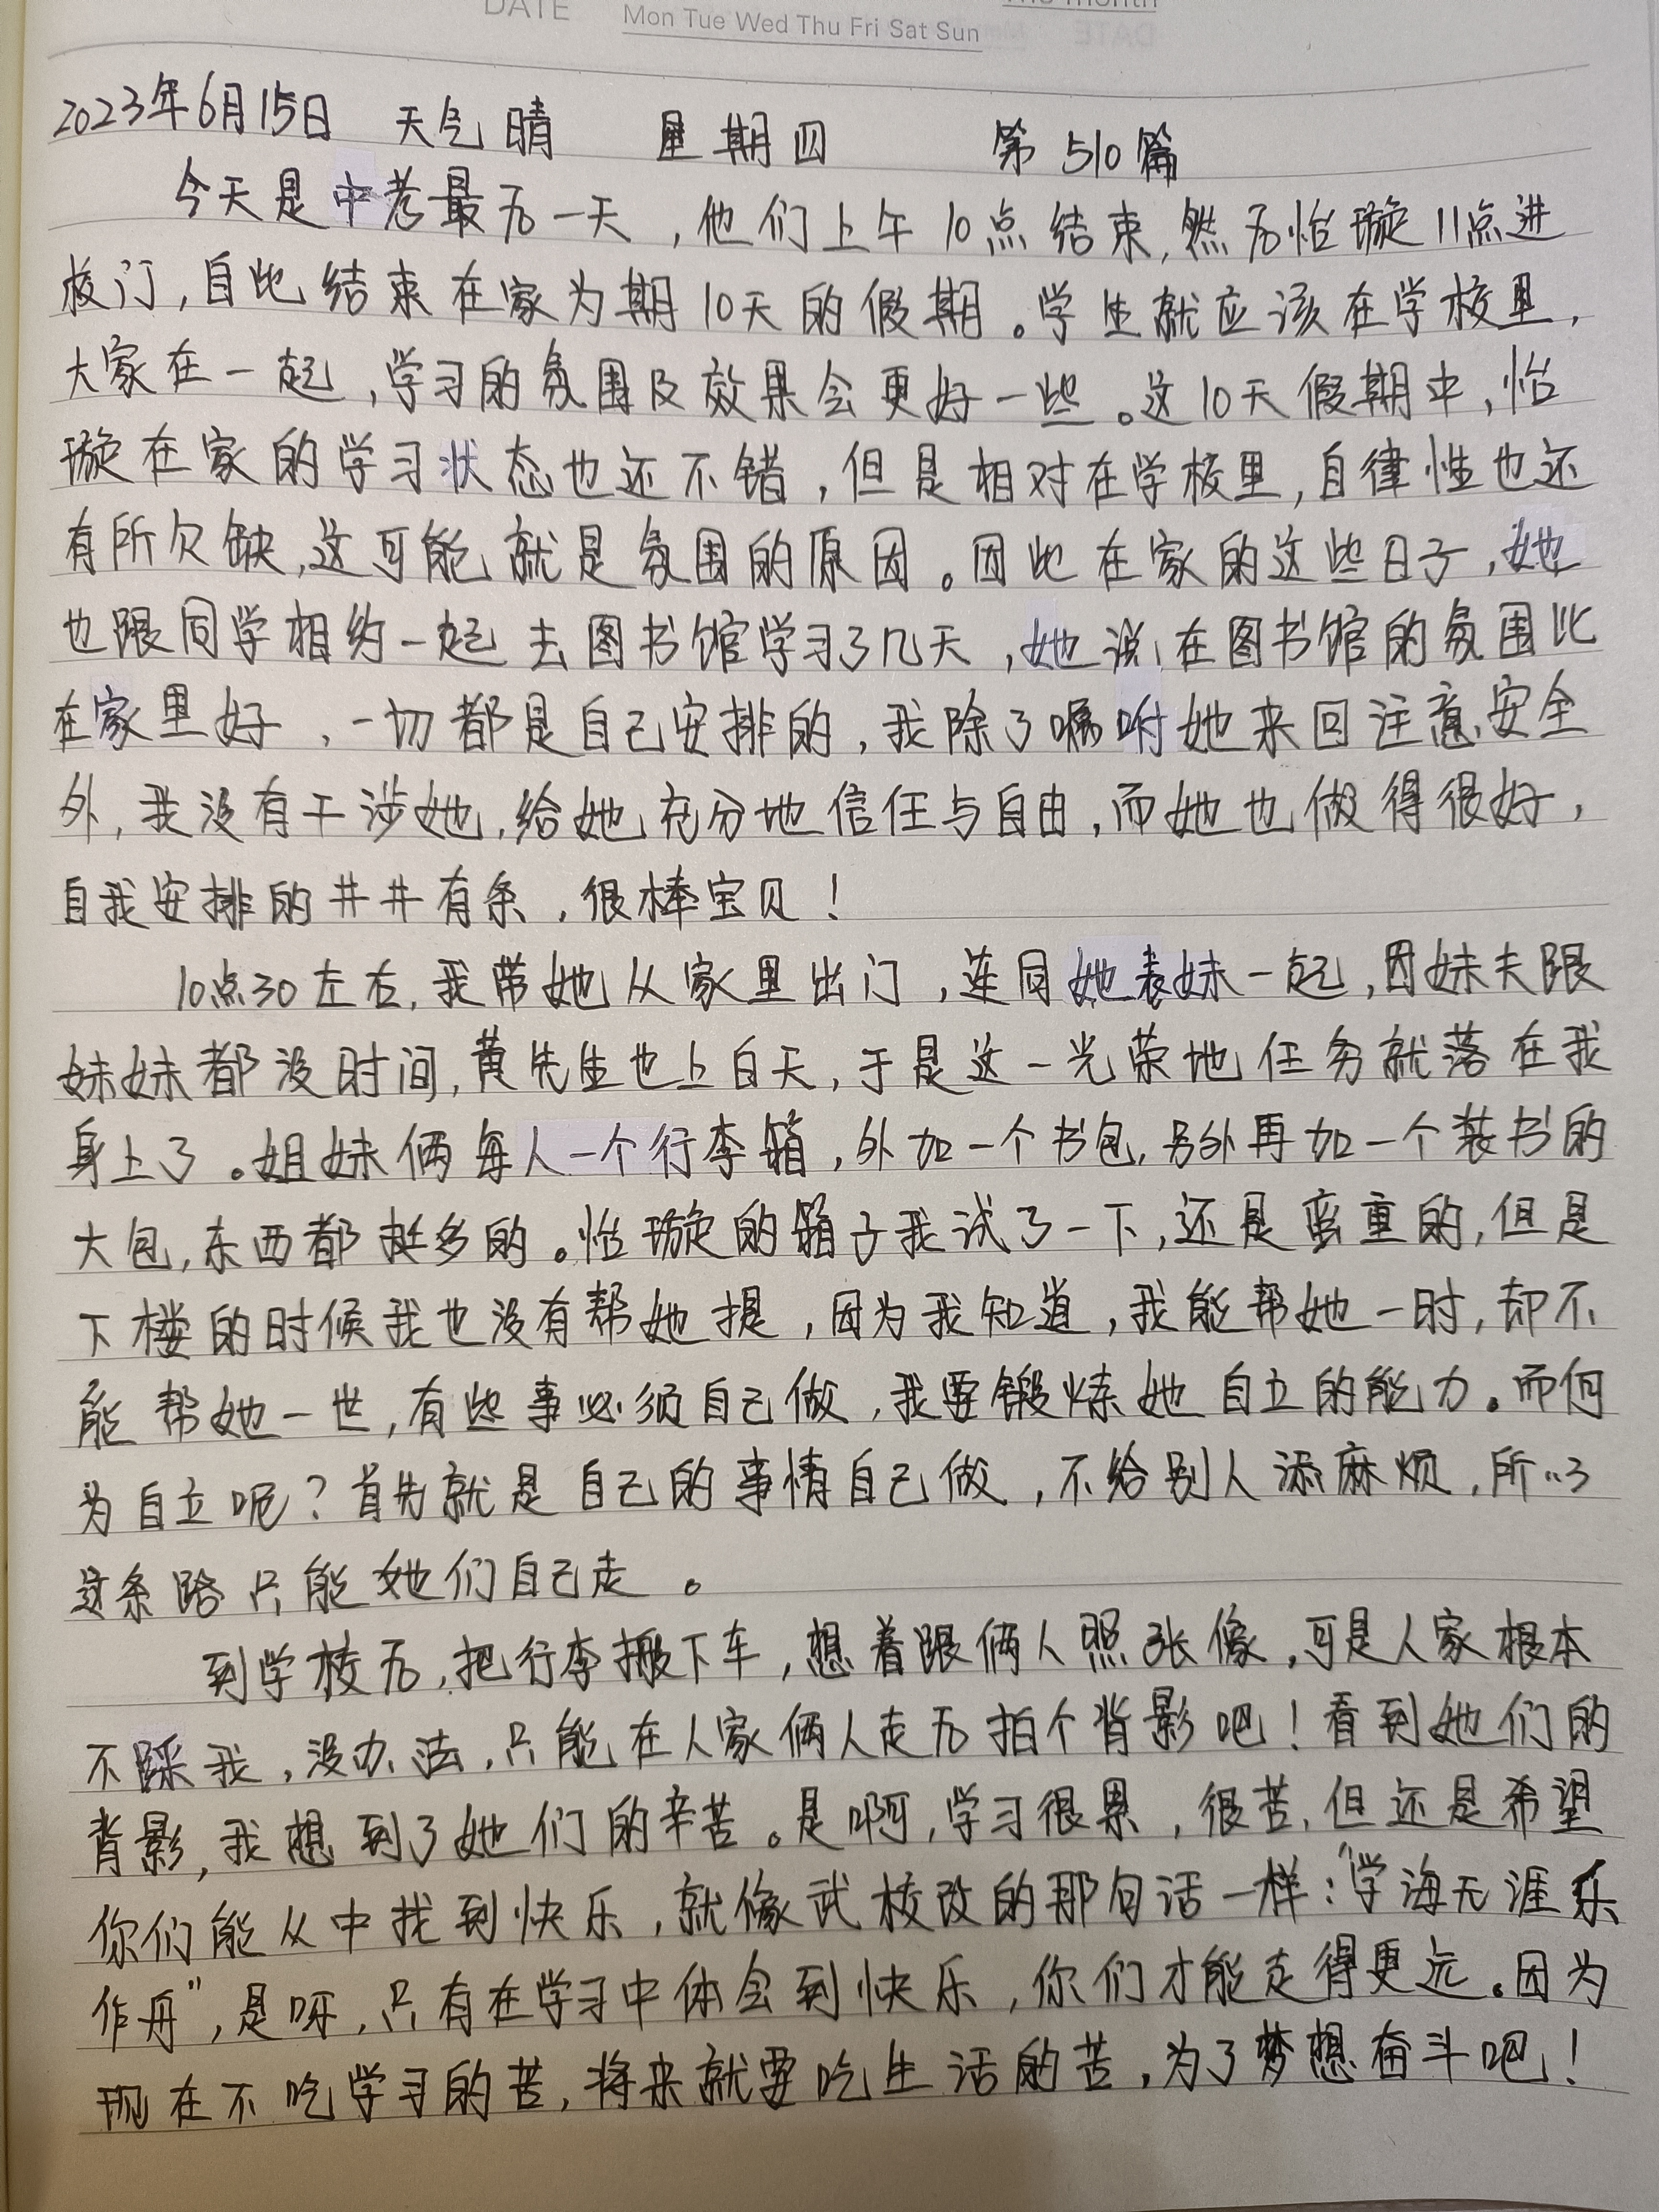 DATE
Mon Tue Wed Thu Fri Sat Sun
2023年6月15日 天气晴 星期四 第510篇
今天是中考最后一天，他们上午10点结束，然后怡璇11点进
校门，自此结束在家为期10天的假期。学生就应该在学校里，
大家在一起，学习的氛围及效果会更好一些。这10天假期中，怡
璇在家的学习状态也还不错，但是相对在学校里，自律性也还
有所欠缺，这可能就是氛围的原因。因此在家的这些日子，她
也跟同学相约一起去图书馆学习了几天，她说在图书馆的氛围比
在家里好，一切都是自己安排的，我除了嘱咐她来回注意安全
外，我没有干涉她，给她充分地信任与自由，而她也做得很好，
自我安排的井井有条，很棒宝贝！
10点30左右，我带她从家里出门，连同她表妹一起，因妹夫跟
妹妹都没时间，黄先生也上白天，于是这一光荣地任务就落在我
身上了。姐妹俩每人一个行李箱，外加一个书包，另外再加一个装书的
大包，东西都挺多的。怡璇的箱子我试了一下，还是蛮重的，但是
下楼的时候我也没有帮她提，因为我知道，我能帮她一时，却不
能帮她一世，有些事必须自己做，我要锻炼她自立的能力。而何
为自立呢？首先就是自己的事情自己做，不给别人添麻烦，所以
这条路只能她们自己走。
到学校后，把行李搬下车，想着跟俩人照张像，可是人家根本
不踩我，没办法，只能在人家俩人走后拍个背影吧！看到她们的
背影，我想到了她们的辛苦。是啊，学习很累，很苦，但还是希望
你们能从中找到快乐，就像武校改的那句话一样：“学海无涯乐
作舟”，是呀，只有在学习中体会到快乐，你们才能走得更远。因为
现在不吃学习的苦，将来就要吃生活的苦，为了梦想奋斗吧！